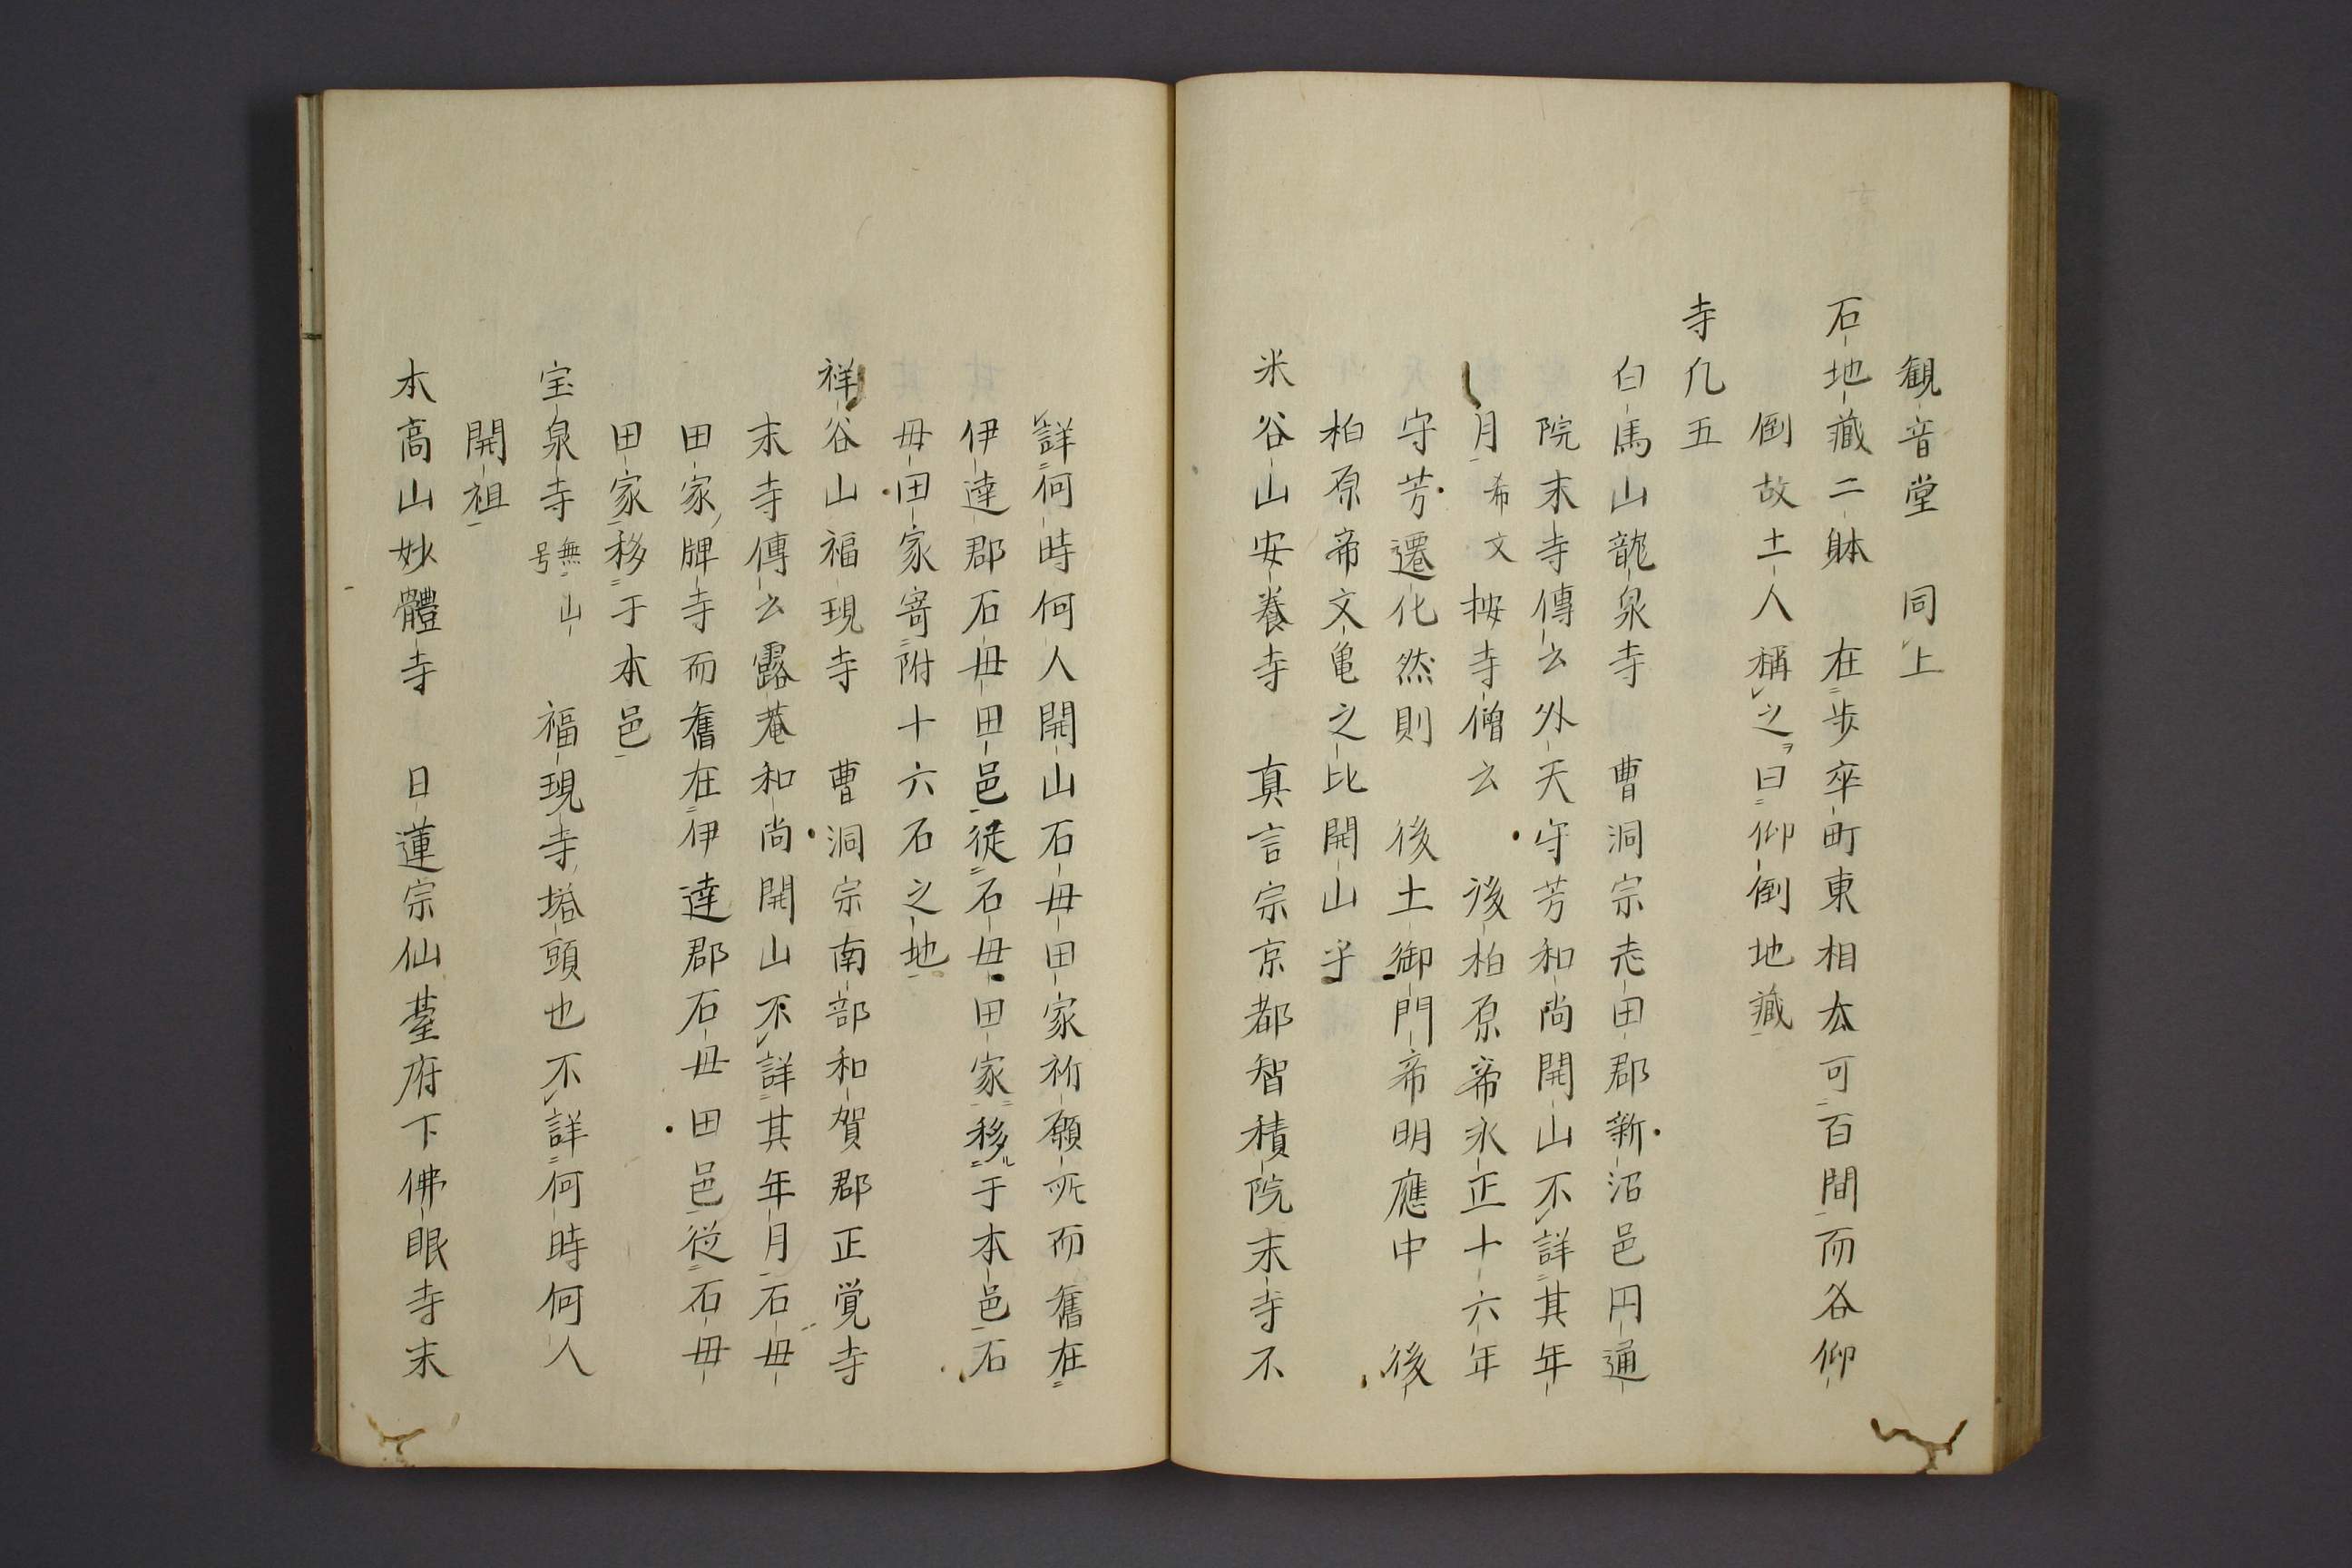 観音堂　同上
石地藏二躰　在歩卒町東相去可百間而各仰
倒故土人稱之曰仰倒地藏
寺凡五
白馬山龍泉寺　曹洞宗志田郡新沼邑円通
院末寺傳云外天守芳和尚開山不詳其年
月希文按寺僧云　後柏原帝永正十六年
守芳遷化然則　後土御門帝明應中　後
柏原帝文亀之比開山乎
米谷山安養寺　真言宗京都智積院末寺不
詳何時何人開山石毋田家祈願所而舊在
伊達郡石毋田邑從石毋田家移于本邑石
毋田家寄附十六石之地
祥谷山福現寺　曹洞宗南部和賀郡正覚寺
末寺傳云露菴和尚開山不詳其年月石毋
田家牌寺而舊在伊達郡石毋田邑從石毋
田家移于本邑
宝泉寺無山号　福現寺塔頭也不詳何時何人
開祖
本高山妙體寺　日蓮宗仙臺府下佛眼寺末